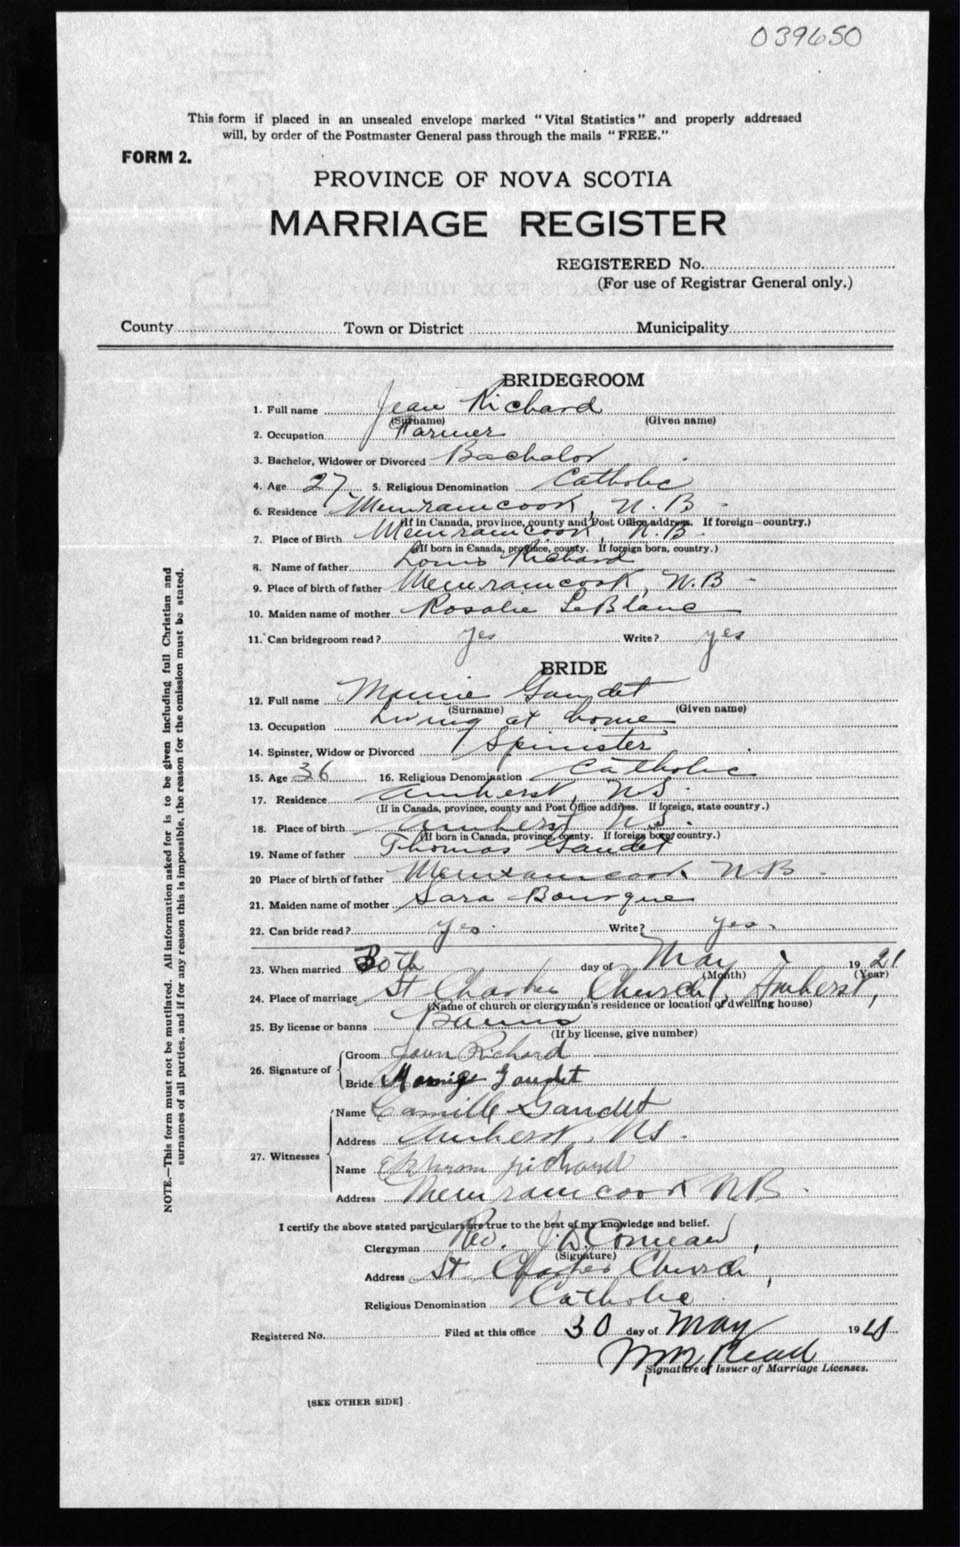 039650
This form if placed in an unsealed envelope marked "Vital Statistics" and properly addressed
will, by order of the Postmaster General pass through the mails "FREE."
FORM 2.
PROVINCE OF NOVA SCOTIA
MARRIAGE REGISTER
REGISTERED No.
(For use of Registrar General only.)
County Town or District Municipality
BRIDEGROOM
1. Full name Jean Richard
(Surname) (Given name)
2. Occupation Farmer
3. Bachelor, Widower or Divorced Bachalor
4. Age 27 5. Religious Denomination Catholic
6. Residence Memramcook, N.B
(If in Canada, province, county and Post Office address. If foreign—country.)
7. Place of Birth Memramcook, N.B.
(If born in Canada, province, county. If foreign born, country.)
8. Name of father Louis Richard
9. Place of birth of father Memramcook, N.B -
10. Maiden name of mother Rosalie LeBlanc
11. Can bridegroom read? yes Write? yes
BRIDE
12. Full name Gaudet
(Surname) (Given name)
13. Occupation Living at home
14. Spinster, Widow or Divorced Spinister
15. Age 36 16. Religious Denomination Catholic
17. Residence Amherst, N.S.
(If in Canada, province, county and Post Office address. If foreign, state country.)
18. Place of birth Amherst N.S.
(If born in Canada, province, county. If foreign born, country.)
19. Name of father Thomas Gaudet
20 Place of birth of father Memramcook N.B.
21. Maiden name of mother Sara Bourque
22. Can bride read? yes. Write? yes.
23. When married 30th day of May 1921
(Month) (Year)
24. Place of marriage St Charles Church, Amherst,
(Name of church or clergyman's residence or location of dwelling house)
25. By license or banns
(If by license, give number)
26. Signature of
Groom Jean Richard
Bride Gaudet
27. Witnesses
Name Camille Gaudet
Address Amherst, N.S.
Name Richard
Address Memramcook N.B.
I certify the above stated particulars are true to the best of my knowledge and belief.
Clergyman Rev. Comeau,
(Signature)
Address St Charles Church,
Religious Denomination Catholic
Registered No. Filed at this office 30 day of May 1921
Signature of Issuer of Marriage Licenses.
[SEE OTHER SIDE]
NOTE.—This form must not be mutilated. All information asked for is to be given including full Christian and
surnames of all parties, and if for any reason this is impossible, the reason for the omission must be stated.